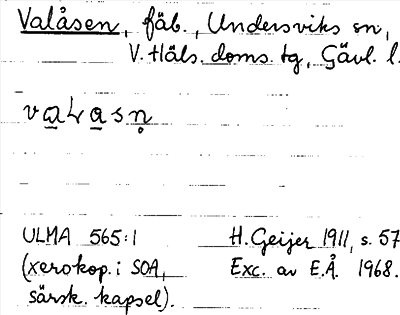 Valåsen, fäb., Undersviks sn,
V. Häls. doms. tg, Gävl. l.
va̲Ꞁa̲sn̥
ULMA 565:1 H. Geijer 1911, s. 57
(xerokop. i SOA, Exc. av E.Å. 1968.
särsk. kapsel).